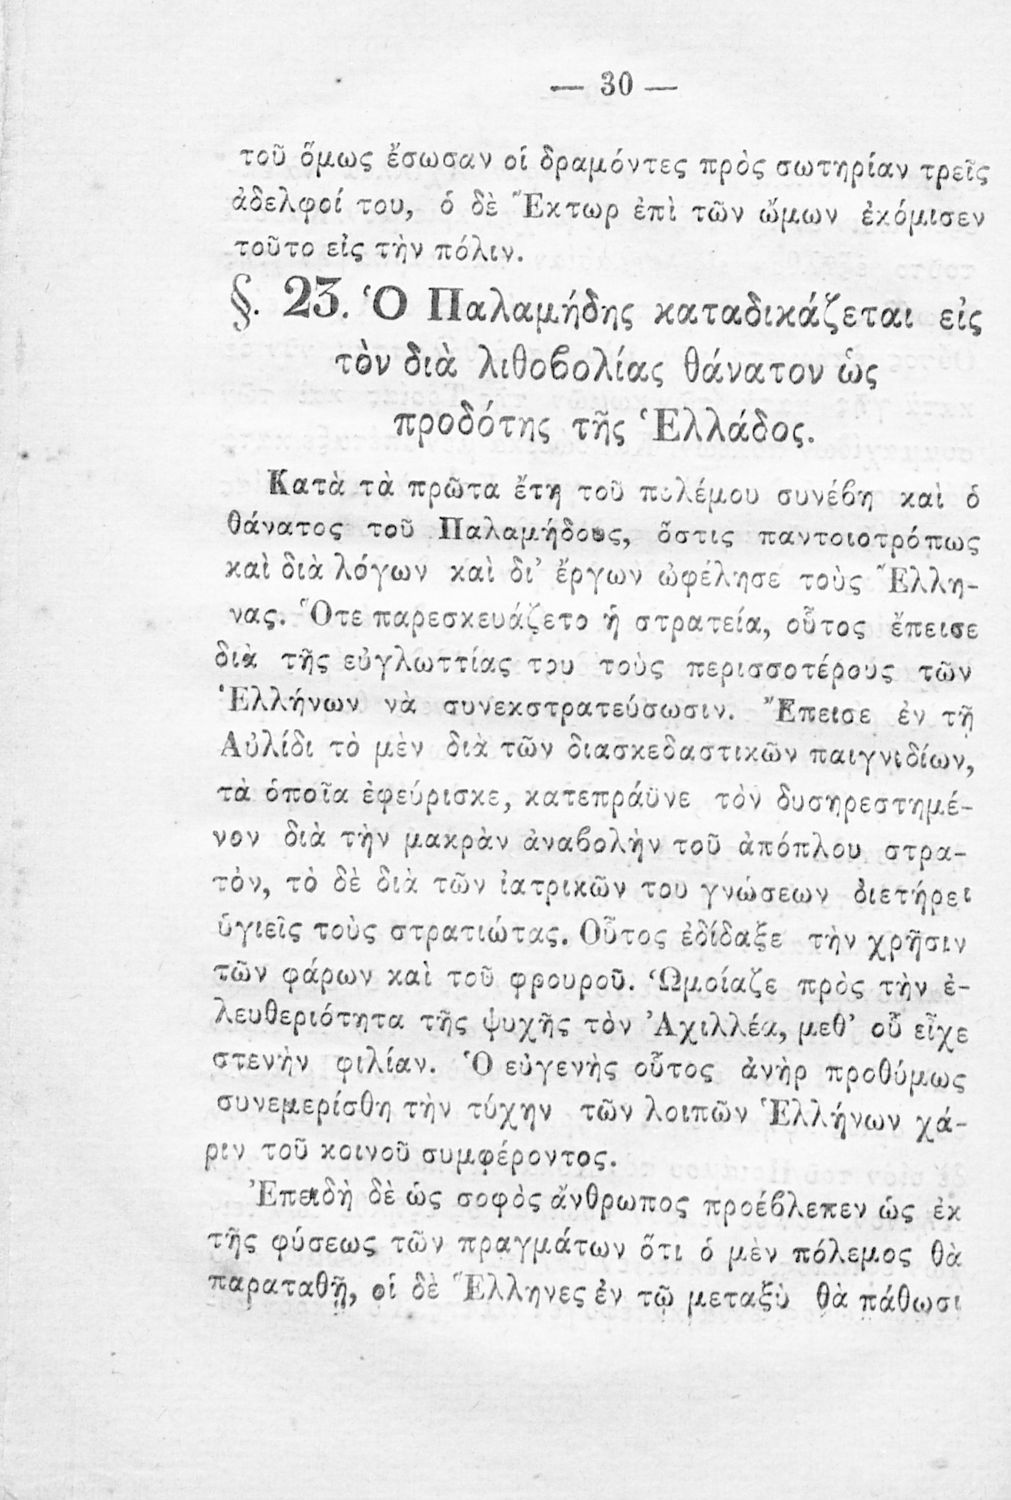 — 30 —
τοῦ ὅμως ἔσωσαν οἱ δραμόντες πρὸς σωτηρίαν τρεῖς
ἀδελφοί του, ὁ δὲ Ἕκτωρ ἐπὶ τῶν ὤμων ἐκόμισεν
τοῦτο εἰς τὴν πόλιν.
§. 23. Ὁ Παλαμήδης καταδικάζεται εἰς
τὸν διὰ λιθοϐολίας θάνατον ὡς
προδότης τῆς Ἑλλάδος.
Κατὰ τὰ πρῶτα ἔτη τοῦ πολέμου συνέϐη καὶ ὁ
θάνατος τοῦ Παλαμήδους, ὅστις παντοιοτρόπως
καὶ διὰ λόγων καὶ δι’ ἔργων ὠφέλησε τοὺς Ἕλλη-
νας. Ὅτε παρεσκευάζετο ἡ στρατεία, οὗτος ἔπεισε
διὰ τῆς εὐγλωττίας του τοὺς περισσοτέρους τῶν
Ἑλλήνων νὰ συνεκστρατεύσωσιν. Ἔπεισε ἐν τῇ
Αὐλίδι τὸ μὲν διὰ τῶν διασκεδαστικῶν παιγνιδίων,
τὰ ὁποῖα ἐφεύρισκε, κατεπράϋνε τὸν δυσηρεστημέ-
νον διὰ τὴν μακρὰν ἀναϐολὴν τοῦ ἀπόπλου στρα-
τὸν, τὸ δὲ διὰ τῶν ἰατρικῶν του γνώσεων διετήρει
ὑγιεῖς τοὺς στρατιώτας. Οὗτος ἐδίδαξε τὴν χρῆσιν
τῶν φάρων καὶ τοῦ φρουροῦ. Ὡμοίαζε πρὸς τὴν ἐ-
λευθεριότητα τῆς ψυχῆς τὸν Ἀχιλλέα, μεθ’ οὗ εἶχε
στενὴν φιλίαν. Ὁ εὐγενὴς οὗτος ἀνὴρ προθύμως
συνεμερίσθη τὴν τύχην τῶν λοιπῶν Ἑλλήνων χά-
ριν τοῦ κοινοῦ συμφέροντος.
Ἐπειδὴ δὲ ὡς σοφὸς ἄνθρωπος προέϐλεπεν ὡς ἐκ
τῆς φύσεως τῶν πραγμάτων ὅτι ὁ μὲν πόλεμος θὰ
παραταθῇ, οἱ δὲ Ἕλληνες ἐν τῷ μεταξὺ θὰ πάθωσι